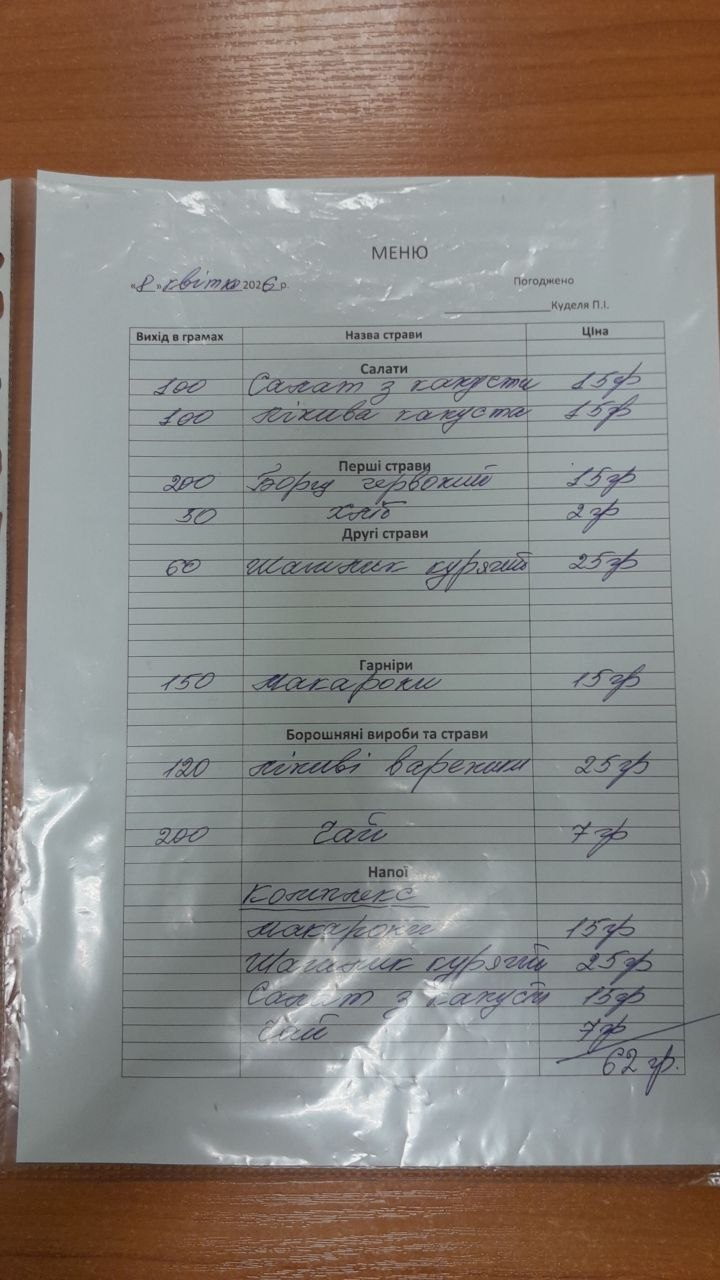 МЕНЮ
«8» квітня 2026 р.
Погоджено
____________Куделя П.І.
Вихід в грамах Назва страви Ціна
Салати
100 Салат з капусти 15гр
100 Пікива капуста 15гр
Перші страви
200 Борщ червоний 15гр
30 хліб 2гр
Другі страви
60 Шашлик курячий 25гр
Гарніри
150 Макарони 15гр
Борошняні вироби та страви
120 Ліниві вареники 25гр
200 Чай 7гр
Напої
Комплекс
Макарони 15гр
Шашлик курячий 25гр
Салат з капусти 15гр
Чай 7гр
62 гр.